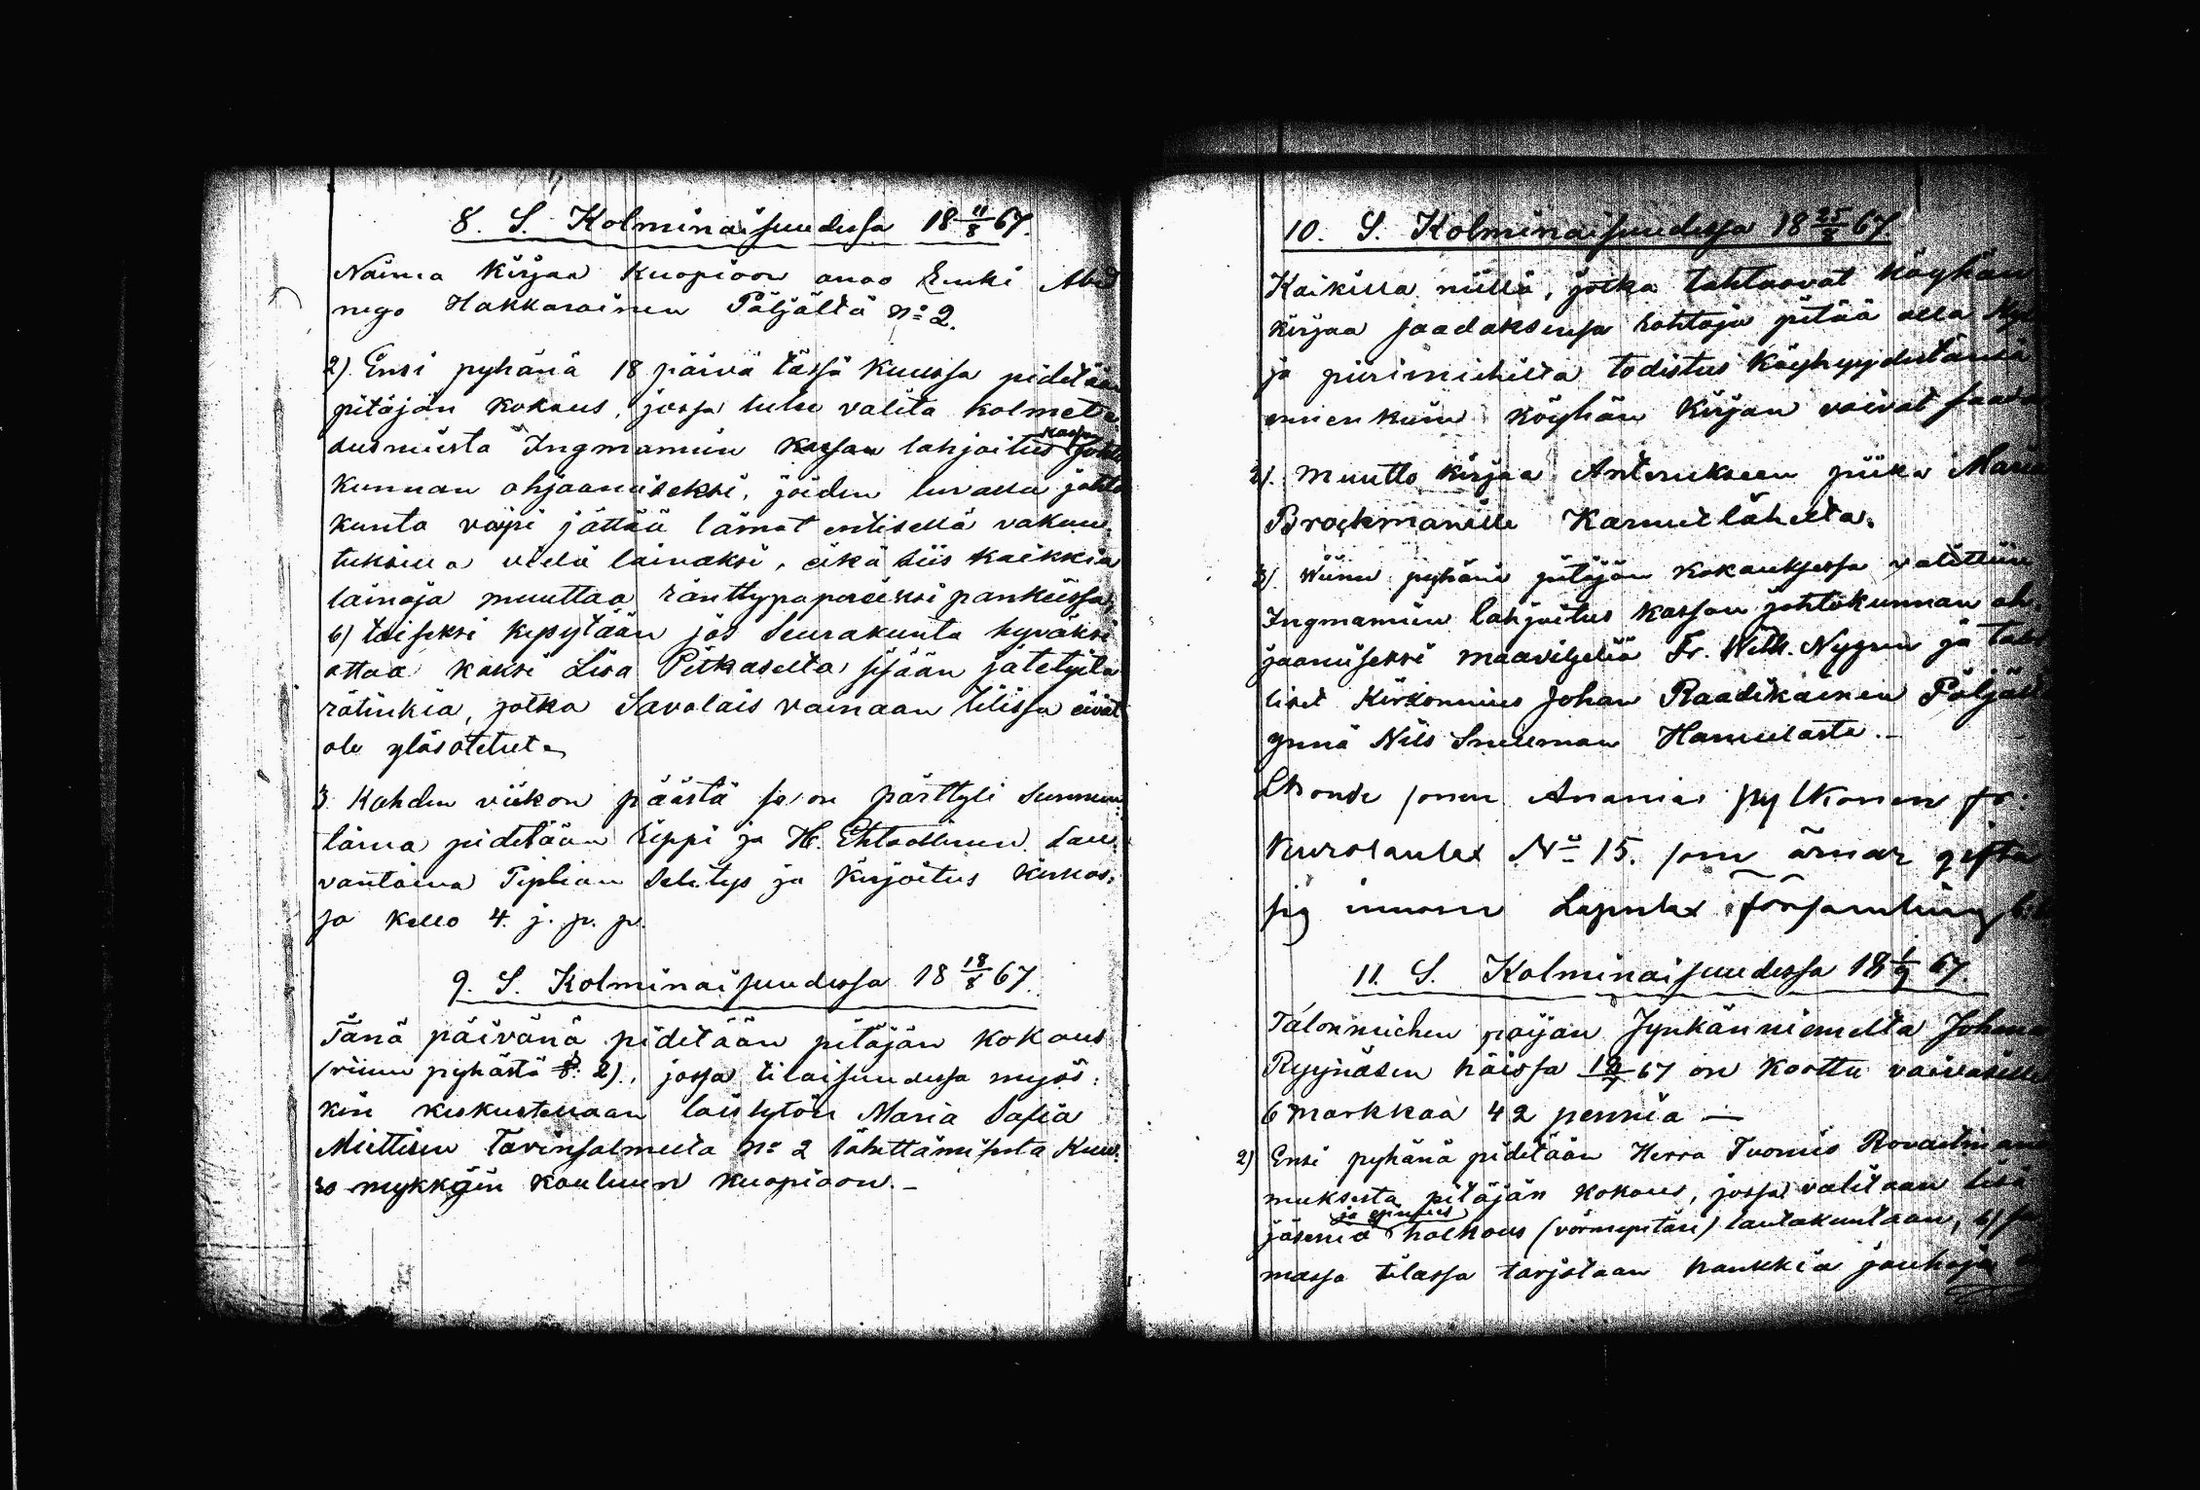 8. S. Kolminaisuudessa 18 11/8 67.
Naima kirjaa Kuopioon anoo Enki Abed
nego Hakkarainen Pöljältä No 2.
2). Ensi pyhänä 18 päivä tässä kuussa pidetään
pitäjän kokous, jossa tulee valita kolme
dusmiestä Ingmannin kassan lahjoitus kassan johto
kunnan ohjaamiseksi, joiden luvalla johto
kunta voipi jättää lainat entisellä vakuu
tuksella vielä lainaksi, eikä siis kaikkia
lainoja muuttaa ränttypapereiksi pankissa,
6) toiseksi kysytään jos Seurakunta hyväksi
ottaa kaksi Lisa Pitkaselta sisään jätetyitä
rätinkiä, jotka Savolais vainaan tilissa eivät
ole ylösotetut.
3 Kahden viikon päästä ja on pärttyli Sunnun
taina pidetään Rippi ja H. Ehtoollinen. Lau
vantaina Piplian Selitys ja Kirjoitus Kirkos
sa kello 4. j. p. p.
9. S. Kolminaisuudessa 18 18/8 67.
Tänä päivänä pidetään pitäjän kokous
(viime pyhästä 8: 2)., jossa tilaisuudessa myös
kin keskustellaan loistytön Maria Safia
Miettisen Tavinsalmelta No 2 lähettämisestä Kuu
ro mykkäin kouluun Kuopioon. –
10. S. Kolminaisuudessa 18 25/8 67.
Kaikilla niillä, jotka tahtoovat köyhän
kirjaa saadaksensa rohtoja pitää olla
ja piirimiehiltä todistus köyhyydestänsä
ennenkuin köyhän kirjan voivat saada
2). Muutto kirjaa Anttnukseen piika Maria
Brockmanille Karnutlähelta.
3) Wiime pyhänä pitäjän kokouksessa valittiin
Ingmannin lahjoitus kassan johtokunnan oh
jaamiseksi maaviljeliä Fr. Wilh. Nygren ja talol
liset Kirkonmies Johan Raadikainen Pöljält
ynnä Nils Snellman Hamulasta. –
Ananias Pylkonen fr:
Kurolanlax No 15. som ärnar gifta
sig innom Lapinlax församling
11. S. Kolminaisuudessa 18 1/9 67.
Talonmiehen pojan Jynkänniemelta Johan
Ryynäsen häissä 67 on koottu vaivasille
6 markkaa 42 penniä —
2) Ensi pyhänä pidetään Herra Tuomis Rovastin
muksesta pitäjän kokous, jossa valitaan lisä
jäseniä holhous (vörmyntäri) lautakuntaan, b) sa
massa tilassa tarjotaan hankkia jauhoja